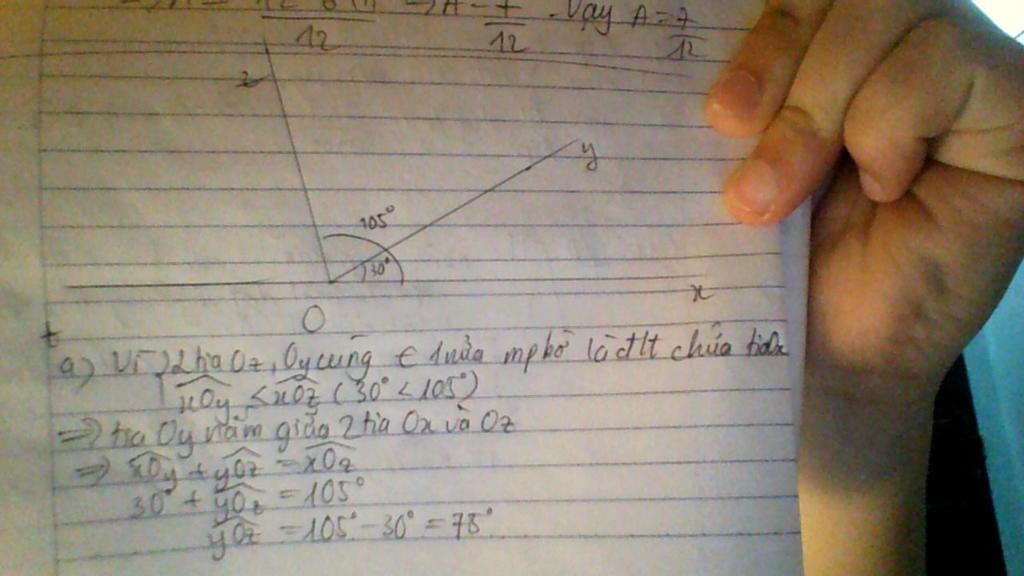 12
⇒ A = 7/12 . Vậy A = 7/12
z
y
105°
30°
x
O
t
a) Vì 2 tia Oz, Oy cùng ∈ 1 nửa mp bờ là đt chứa tia Ox
xOy < xOz (30° < 105°)
⇒ tia Oy nằm giữa 2 tia Ox và Oz
⇒ xOy + yOz = xOz
30° + yOz = 105°
yOz = 105° - 30° = 75°